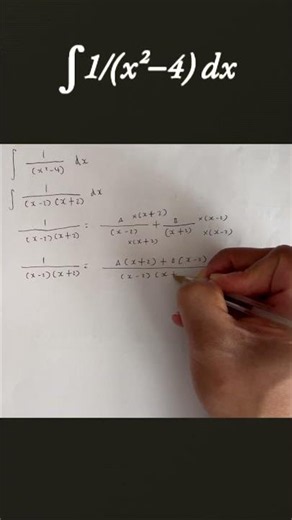 ∫1/(x²−4) dx
∫ 1/(x²-4) dx
∫ 1/(x-2)(x+2) dx
1/(x-2)(x+2) = A ×(x+2)/(x-2) ×(x+2) + B ×(x-2)/(x+2) ×(x-2)
1/(x-2)(x+2) = A(x+2) + B(x-2)/(x-2)(x